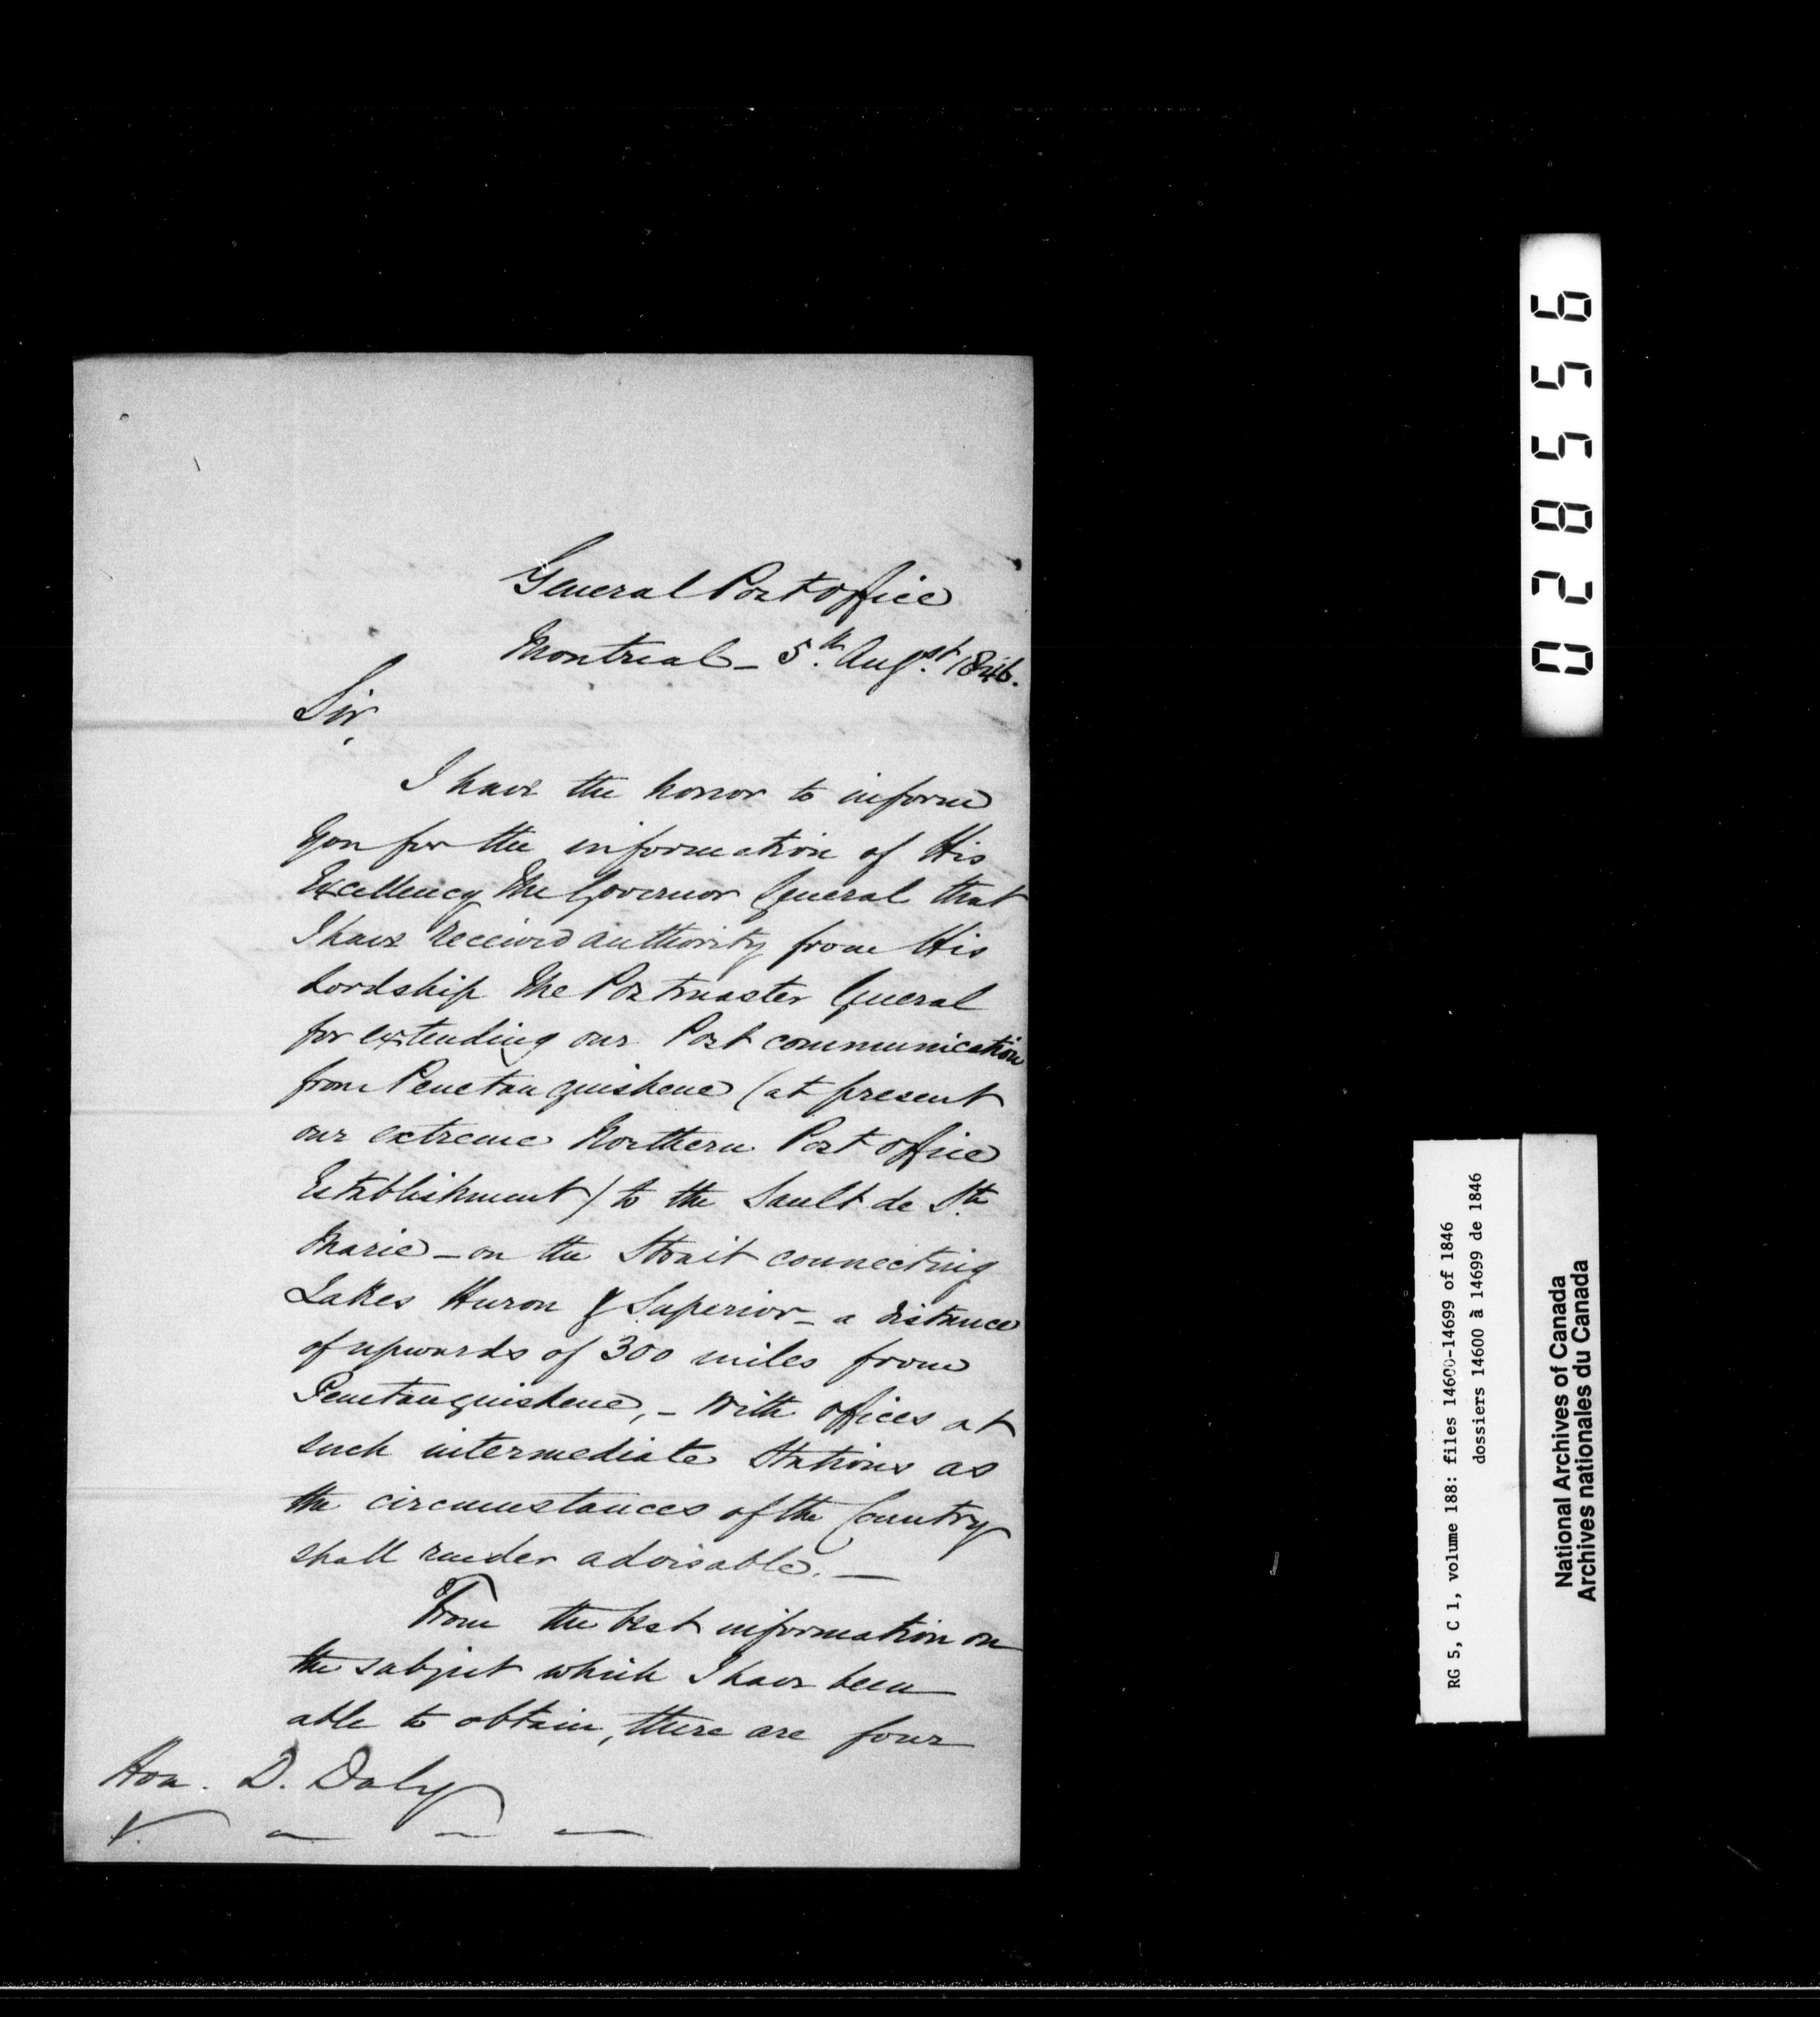 General Post Office
Montreal - 5th. Augst. 1846.
Sir,
I have the honor to inform
you for the information of His
Excellency The Governor General that
I have received authority from His
Lordship The Postmaster General
for extending our Post communication
from Penetanguishene (at present
our extreme Northern Post Office
Establishment) to the Sault de Ste.
Marie - on the Strait connecting
Lakes Huron & Superior - a distance
of upwards of 300 miles from
Penetanguishene, - with offices at
such intermediate Stations as
the circumstances of the Country
shall render advisable. -
From the best information on
the subject which I have been
able to obtain, there are four
Hon. D. Daly
028556
RG 5, C 1, volume 188: files 14600-14699 of 1846
dossiers 14600 à 14699 de 1846
National Archives of Canada
Archives nationales du Canada